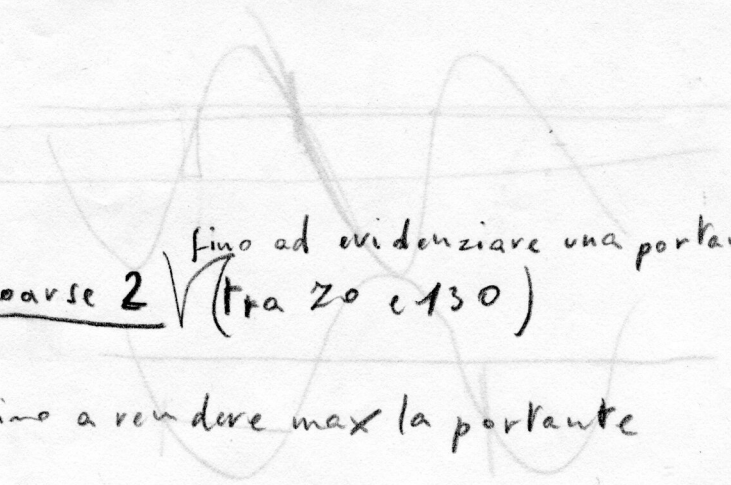 fino ad evidenziare una portan
oarse 2 (tra 20 e 130)
ino a rendere max la portante